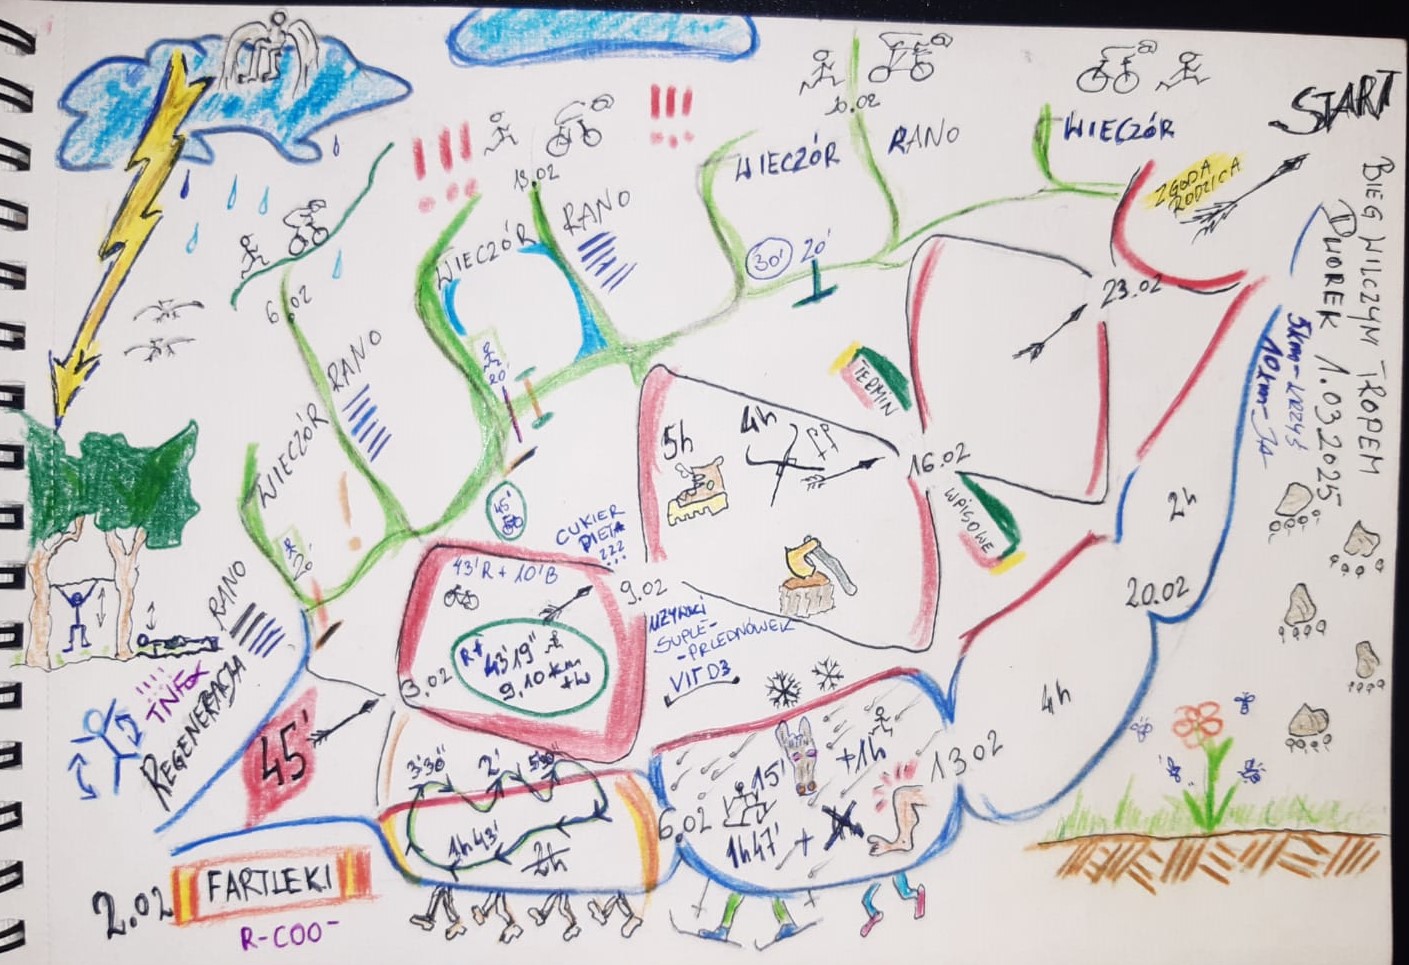 START
BIEG WILCZYM TROPEM
DWOREK 1.03.2025
10km-JA
ZGODA
RODZICA
WIECZÓR
10.02
RANO
WIECZÓR
30'
20'
!!!
!!!
13.02
RANO
WIECZÓR
20'
6.02
RANO
WIECZÓR
20'
RANO
TNFOX
REGENERACJA
45'
45'
23.02
TERMIN
16.02
WPISOWE
5h
4h
PP
CUKIER
PIETA
???
9.02
SUPLE-
-PRZEDNÓWEK
VIT D3
43'R + 10'B
R+
43'19"
9,10 km
+W
3.02
3'38"
2'
1h43'
2h
6.02
15'
+1h
1h47' +
13.02
4h
20.02
2h
2.02
FARTLEKI
R-COO-